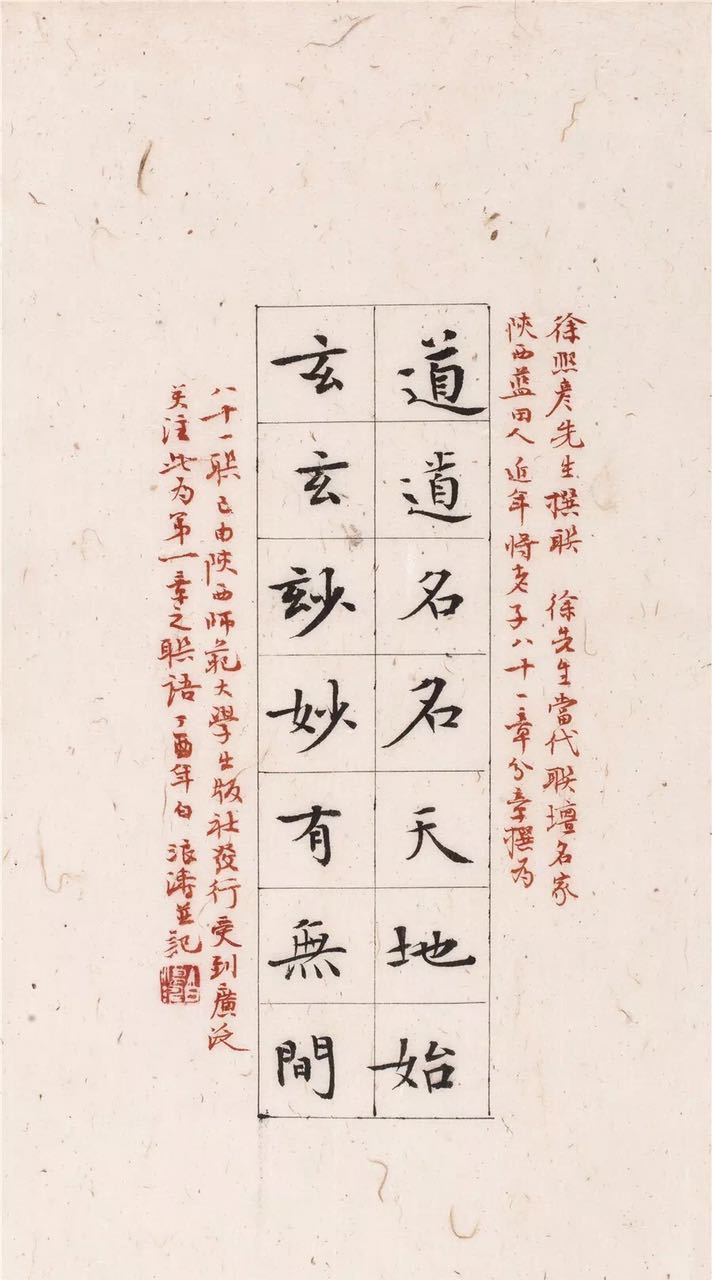 徐熙彦先生撰联 徐先生當代联壇名家
陝西藍田人近年將老子八十一章分章撰为
道道名名天地始
玄玄玅妙有無間
八十一联已由陝西师範大學出版社發行受到廣泛
关注此为第一章之联語丁酉年白浪濤並記